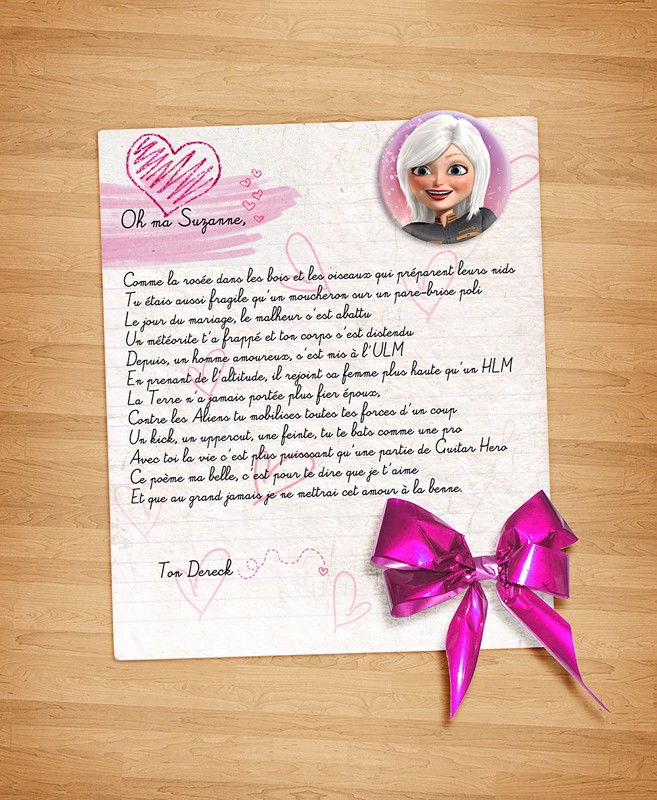 Oh ma Suzanne,
Comme la rosée dans les bois et les oiseaux qui préparent leurs nids
Tu étais aussi fragile qu'un moucheron sur un pare-brise poli
Le jour du mariage, le malheur s'est abattu
Un météorite t'a frappé et ton corps s'est distendu
Depuis, un homme amoureux, s'est mis à l'ULM
En prenant de l'altitude, il rejoint sa femme plus haute qu'un HLM
La Terre n'a jamais portée plus fier époux,
Contre les Aliens tu mobilises toutes tes forces d'un coup
Un kick, un uppercut, une feinte, tu te bats comme une pro
Avec toi la vie c'est plus puissant qu'une partie de Guitar Hero
Ce poème ma belle, c'est pour te dire que je t'aime
Et que au grand jamais je ne mettrai cet amour à la benne.
Ton Dereck